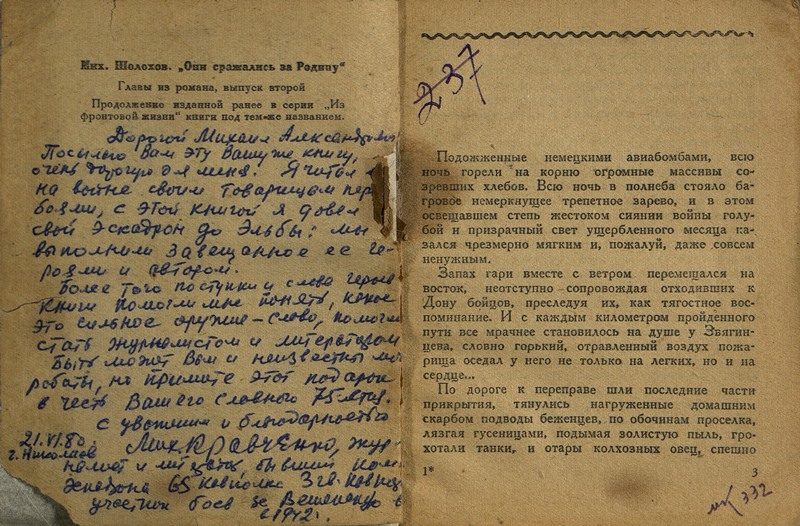 Мих. Шолохов. „Они сражались за Родину“
Главы из романа, выпуск второй
Продолжение изданной ранее в серии „Из
фронтовой жизни“ книги под тем-же названием.
Дорогой Михаил Александрович
Посылаю Вам эту Вашу же книгу,
очень дорогую для меня. Я читал
на войне своим товарищам пер
боями, с этой книгой я довел
свой эскадрон до Эльбы: мы
выполнили завещанное ее ге-
роями и автором.
Более того поступки и слова героев
книги помогли мне понять, какое
это сильное оружие – слово, помогли
стать журналистом и литератором
Быть может Вам и неизвестны
но примите этот подарок
в честь Вашего славного 75-летия.
с уважением и благодарностью
21.VI.80
г. Николаев
Мих. Кравченко, жур-
налист и бывший ком.
эскадрона 65 кавполка 3 гв.
участник боев за Вешенскую в
1942г.
237
Подожженные немецкими авиабомбами, всю
ночь горели на корню огромные массивы со-
зревших хлебов. Всю ночь в полнеба стояло ба-
гровое немеркнущее трепетное зарево, и в этом
освещавшем степь жестоком сиянии войны голу-
бой и призрачный свет ущербленного месяца ка-
зался чрезмерно мягким и, пожалуй, даже совсем
ненужным.
Запах гари вместе с ветром перемещался на
восток, неотступно сопровождая отходивших к
Дону бойцов, преследуя их, как тягостное вос-
поминание. И с каждым километром пройденного
пути все мрачнее становилось на душе у Звягин-
цева, словно горький, отравленный воздух пожа-
рища оседал у него не только на легких, но и на
сердце...
По дороге к переправе шли последние части
прикрытия, тянулись нагруженные домашним
скарбом подводы беженцев, по обочинам проселка,
лязгая гусеницами, подымая золистую пыль, гро-
хотали танки, и отары колхозных овец, спешно
1*
3
мк 332